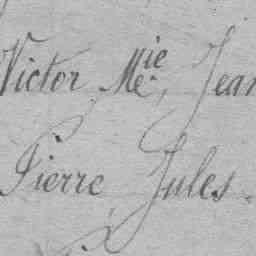 Victor Mie, Jean
Pierre Jules.